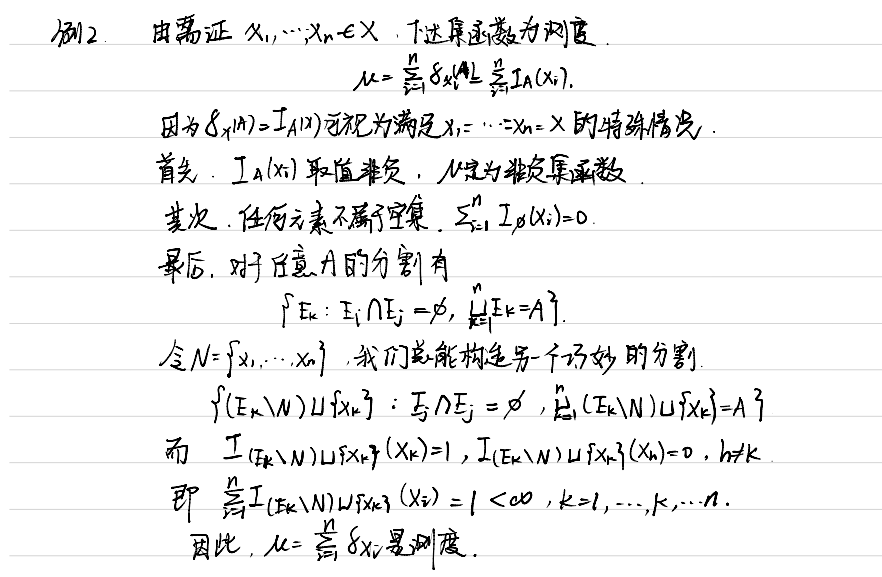 例2. 由需证 x₁,…,xₙ∈X, 下述集函数为测度.
μ = ∑ᵢ₌₁ⁿ δₓᵢ(A) = ∑ᵢ₌₁ⁿ I_A(xᵢ).
因为 δₓ(A) = I_A(x) 可视为满足 x₁=…=xₙ=x 的特殊情况.
首先. I_A(xᵢ) 取值非负, μ定为非负集函数.
其次. 任何元素不属于空集. ∑ᵢ₌₁ⁿ I_∅(xᵢ)=0.
最后. 对于任意A的分割有
{Eₖ : Eᵢ∩Eⱼ=∅, ⨆ₖ₌₁ⁿ Eₖ=A}.
令N={x₁,…,xₙ}, 我们总能构造另一个巧妙的分割.
{(Eₖ\N)⊔{xₖ} : Eᵢ∩Eⱼ=∅, ⨆ₖ₌₁ⁿ (Eₖ\N)⊔{xₖ}=A}
而 I_{(Eₖ\N)⊔{xₖ}}(xₖ)=1, I_{(Eₖ\N)⊔{xₖ}}(xₕ)=0, h≠k
即 ∑ᵢ₌₁ⁿ I_{(Eₖ\N)⊔{xₖ}}(xᵢ)=1<∞, k=1,…,k,…n.
因此, μ=∑ᵢ₌₁ⁿ δₓᵢ 是测度.